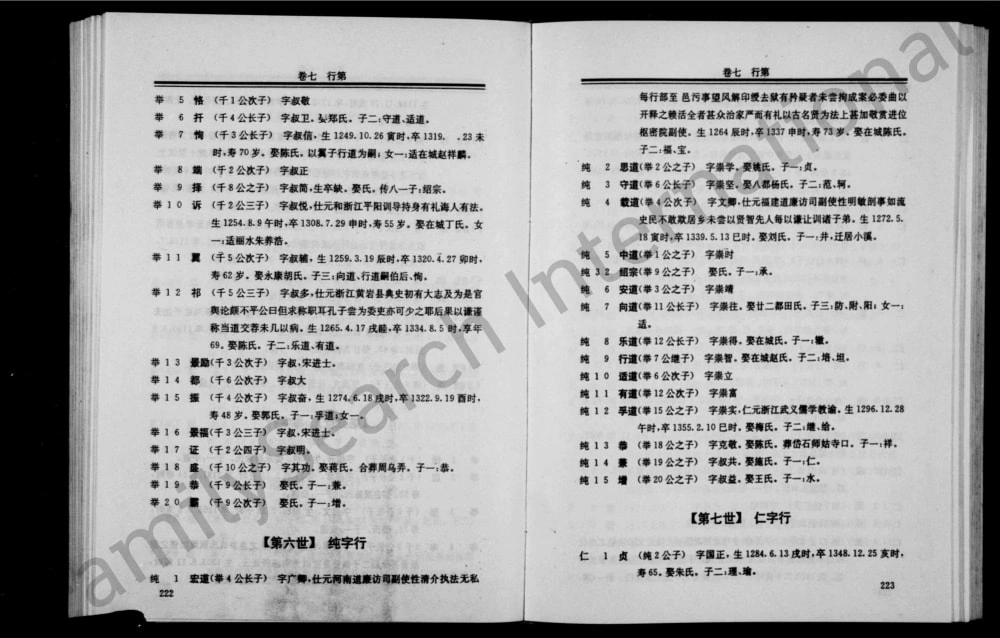 卷七 行第
举 5 恪 (千1公次子) 字叔敬
举 6 扞 (千4公长子) 字叔卫。娶郑氏。子二:守道、适道。
举 7 恂 (千3公长子) 字叔信,生1249.10.26寅时,卒1319. .23未
时,寿70岁。娶陈氏。以翼子行道为嗣;女一:适在城赵祥麟。
举 8 端 (千2公次子) 字叔正
举 9 择 (千8公之子) 字叔简,生卒缺。娶氏。传八一子:绍宗。
举10 诉 (千2公三子) 字叔悦,仕元和浙江平阳训导持身有礼诲人有法。
生1254.8.9午时,卒1308.7.29申时,寿55岁。娶在城丁氏。女
一:适丽水朱养浩。
举11 翼 (千5公次子) 字叔辅,生1259.3.19辰时,卒1320.4.27卯时,
寿62岁。娶永康胡氏。子三:向道、行道嗣伯后、恂。
举12 祁 (千5公三子) 字叔多,仕元浙江黄岩县典史初有大志及为是官
舆论颇不平公曰但求称职耳孔子尝为委吏亦可少之耶后果以谦谨
称当道交荐未几以病。生1265.4.17戌时,卒1334.8.5时,享年
69。娶陈氏。子二:乐道、有道。
举13 景励(千3公次子) 字叔,宋进士。
举14 都 (千6公次子) 字叔大
举15 振 (千4公次子) 字叔奋,生1274.6.18戌时,卒1322.9.19酉时,
寿48岁。娶郭氏。子一:孚道;女一。
举16 景福(千3公三子) 字叔,宋进士。
举17 证 (千2公四子) 字叔明。
举18 盛 (千10公之子) 字其功。娶蒋氏。合葬周乌弄。子一:恭。
举19 恭 (千9公长子) 娶氏。子一:兼。
举20 霸 (千9公次子) 娶氏。子一:增。
【第六世】 纯字行
纯 1 宏道(举4公长子) 字广卿,仕元河南道廉访司副使性清介执法无私
222
卷七 行第
每行部至 邑污事望风解印绶去狱有矜疑者未尝拘成案必委曲以
开释之赖活全者甚众治家严而有礼以古名贤为法上甚加敬贵进位
枢密院副使。生1264辰时,卒1337申时,寿73岁。娶在城陈氏。
子二:福、宝。
纯 2 思道(举2公之子) 字崇学。娶姚氏。子一:贞。
纯 3 守道(举6公长子) 字崇坚。娶八都杨氏。子二:范、轲。
纯 4 载道(举4公次子) 字文卿,仕元福建道廉访司副使性明敏剖事如流
史民不敢欺居乡未尝以贤智先人每以谦让训诸子弟。生1272.5.
18寅时,卒1339.5.13巳时。娶刘氏。子一:井,迁居小溪。
纯 5 中道(举1公之子) 字崇时
纯32 绍宗(举9公之子) 娶氏。子一:承。
纯 6 安道(举3公之子) 字崇靖
纯 7 向道(举11公长子) 字崇往。娶廿二都田氏。子三:防、附、阳;女一:
适。
纯 8 乐道(举12公长子) 字崇得。娶在城氏。子一:辙。
纯 9 行道(举7公继子) 字崇智。娶在城赵氏。子二:培、坦。
纯10 适道(举6公次子) 字崇立
纯11 有道(举12公次子) 字崇富
纯12 孚道(举15公之子) 字崇实,仁元浙江武义儒学教谕。生1296.12.28
午时,卒1355.2.10巳时。娶梅氏。子二:继、给。
纯13 恭 (举18公之子) 字克敬。娶陈氏。葬岱石师姑寺口。子一:祥。
纯14 兼 (举19公之子) 字叔共。娶施氏。子一:仁。
纯15 增 (举20公之子) 字叔益。娶王氏。子一:水。
【第七世】 仁字行
仁 1 贞 (纯2公子) 字国正,生1284.6.13戌时,卒1348.12.25亥时,
寿65。娶朱氏。子二:理、瑜。
223
amilySearch International